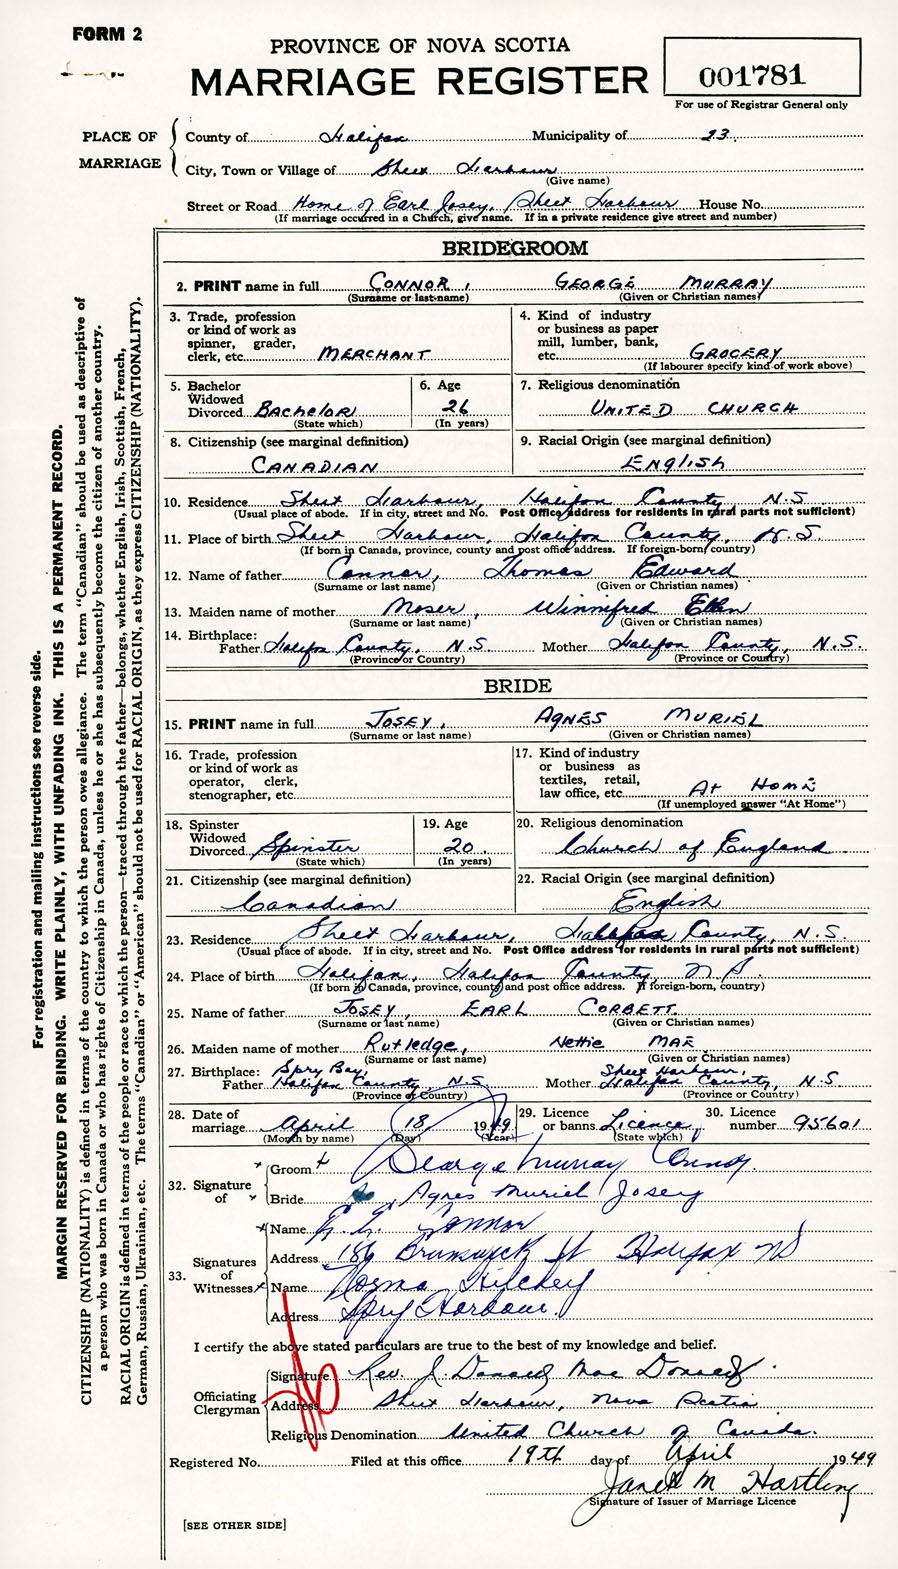 FORM 2
PROVINCE OF NOVA SCOTIA
MARRIAGE REGISTER
001781
For use of Registrar General only
PLACE OF MARRIAGE
County of Halifax Municipality of 23
City, Town or Village of Sheet Harbour
(Give name)
Street or Road Home of Earl Josey, Sheet Harbour House No.
(If marriage occurred in a Church, give name. If in a private residence give street and number)
BRIDEGROOM
2. PRINT name in full CONNOR, GEORGE MURRAY
(Surname or last name) (Given or Christian names)
3. Trade, profession
or kind of work as
spinner, grader,
clerk, etc. MERCHANT
4. Kind of industry
or business as paper
mill, lumber, bank,
etc. GROCERY
(If labourer specify kind of work above)
5. Bachelor
Widowed
Divorced BachELOR
(State which)
6. Age
26
(In years)
7. Religious denomination
UNITED CHURCH
8. Citizenship (see marginal definition)
CANADIAN
9. Racial Origin (see marginal definition)
ENglisH
10. Residence Sheet Harbour, Halifax County, N.S.
(Usual place of abode. If in city, street and No. Post Office address for residents in rural parts not sufficient)
11. Place of birth Sheet Harbour, Halifax County, N.S.
(If born in Canada, province, county and post office address. If foreign-born, country)
12. Name of father Connor, Thomas Edward
(Surname or last name) (Given or Christian names)
13. Maiden name of mother Moser, Winnifred Ellen
(Surname or last name) (Given or Christian names)
14. Birthplace:
Father Halifax County, N.S. Mother Halifax County, N.S.
(Province or Country) (Province or Country)
BRIDE
15. PRINT name in full JOSEY, AGNES MURIEL
(Surname or last name) (Given or Christian names)
16. Trade, profession
or kind of work as
operator, clerk,
stenographer, etc.
17. Kind of industry
or business as
textiles, retail,
law office, etc. At HOME
(If unemployed answer "At Home")
18. Spinster
Widowed
Divorced Spinster
(State which)
19. Age
20
(In years)
20. Religious denomination
Church of England
21. Citizenship (see marginal definition)
Canadian
22. Racial Origin (see marginal definition)
English
23. Residence Sheet Harbour, Halifax County, N.S.
(Usual place of abode. If in city, street and No. Post Office address for residents in rural parts not sufficient)
24. Place of birth Halifax, Halifax County N S.
(If born in Canada, province, county and post office address. If foreign-born, country)
25. Name of father JOSEY, EARL CORBETT
(Surname or last name) (Given or Christian names)
26. Maiden name of mother Rutledge, Nettie MAE
(Surname or last name) (Given or Christian names)
27. Birthplace: Spry Bay, Sheet Harbour,
Father Halifax County, N.S. Mother Halifax County, N.S.
(Province or Country) (Province or Country)
28. Date of
marriage April 18 1949
(Month by name) (Day) (Year)
29. Licence
or banns Licence
(State which)
30. Licence
number 95601
32. Signature of
Groom George Murray Connor
Bride Agnes Muriel Josey
33. Signatures of Witnesses
Name Connor
Address 186 Brunswick St Halifax NS
Name Norma Hilchey
Address Spry Harbour.
I certify the above stated particulars are true to the best of my knowledge and belief.
Officiating Clergyman
Signature Rev. J. Donald MacDonald.
Address Sheet Harbour, Nova Scotia
Religious Denomination United Church of Canada.
Registered No. Filed at this office 19th day of April 1949
Janet M Hartling
Signature of Issuer of Marriage Licence
[SEE OTHER SIDE]
For registration and mailing instructions see reverse side.
MARGIN RESERVED FOR BINDING. WRITE PLAINLY, WITH UNFADING INK. THIS IS A PERMANENT RECORD.
CITIZENSHIP (NATIONALITY) is defined in terms of the country to which the person owes allegiance. The term "Canadian" should be used as descriptive of
a person who was born in Canada or who has rights of Citizenship in Canada, unless he or she has subsequently become the citizen of another country.
RACIAL ORIGIN is defined in terms of the people or race to which the person—traced through the father—belongs, whether English, Irish, Scottish, French,
German, Russian, Ukrainian, etc. The terms "Canadian" or "American" should not be used for RACIAL ORIGIN, as they express CITIZENSHIP (NATIONALITY).